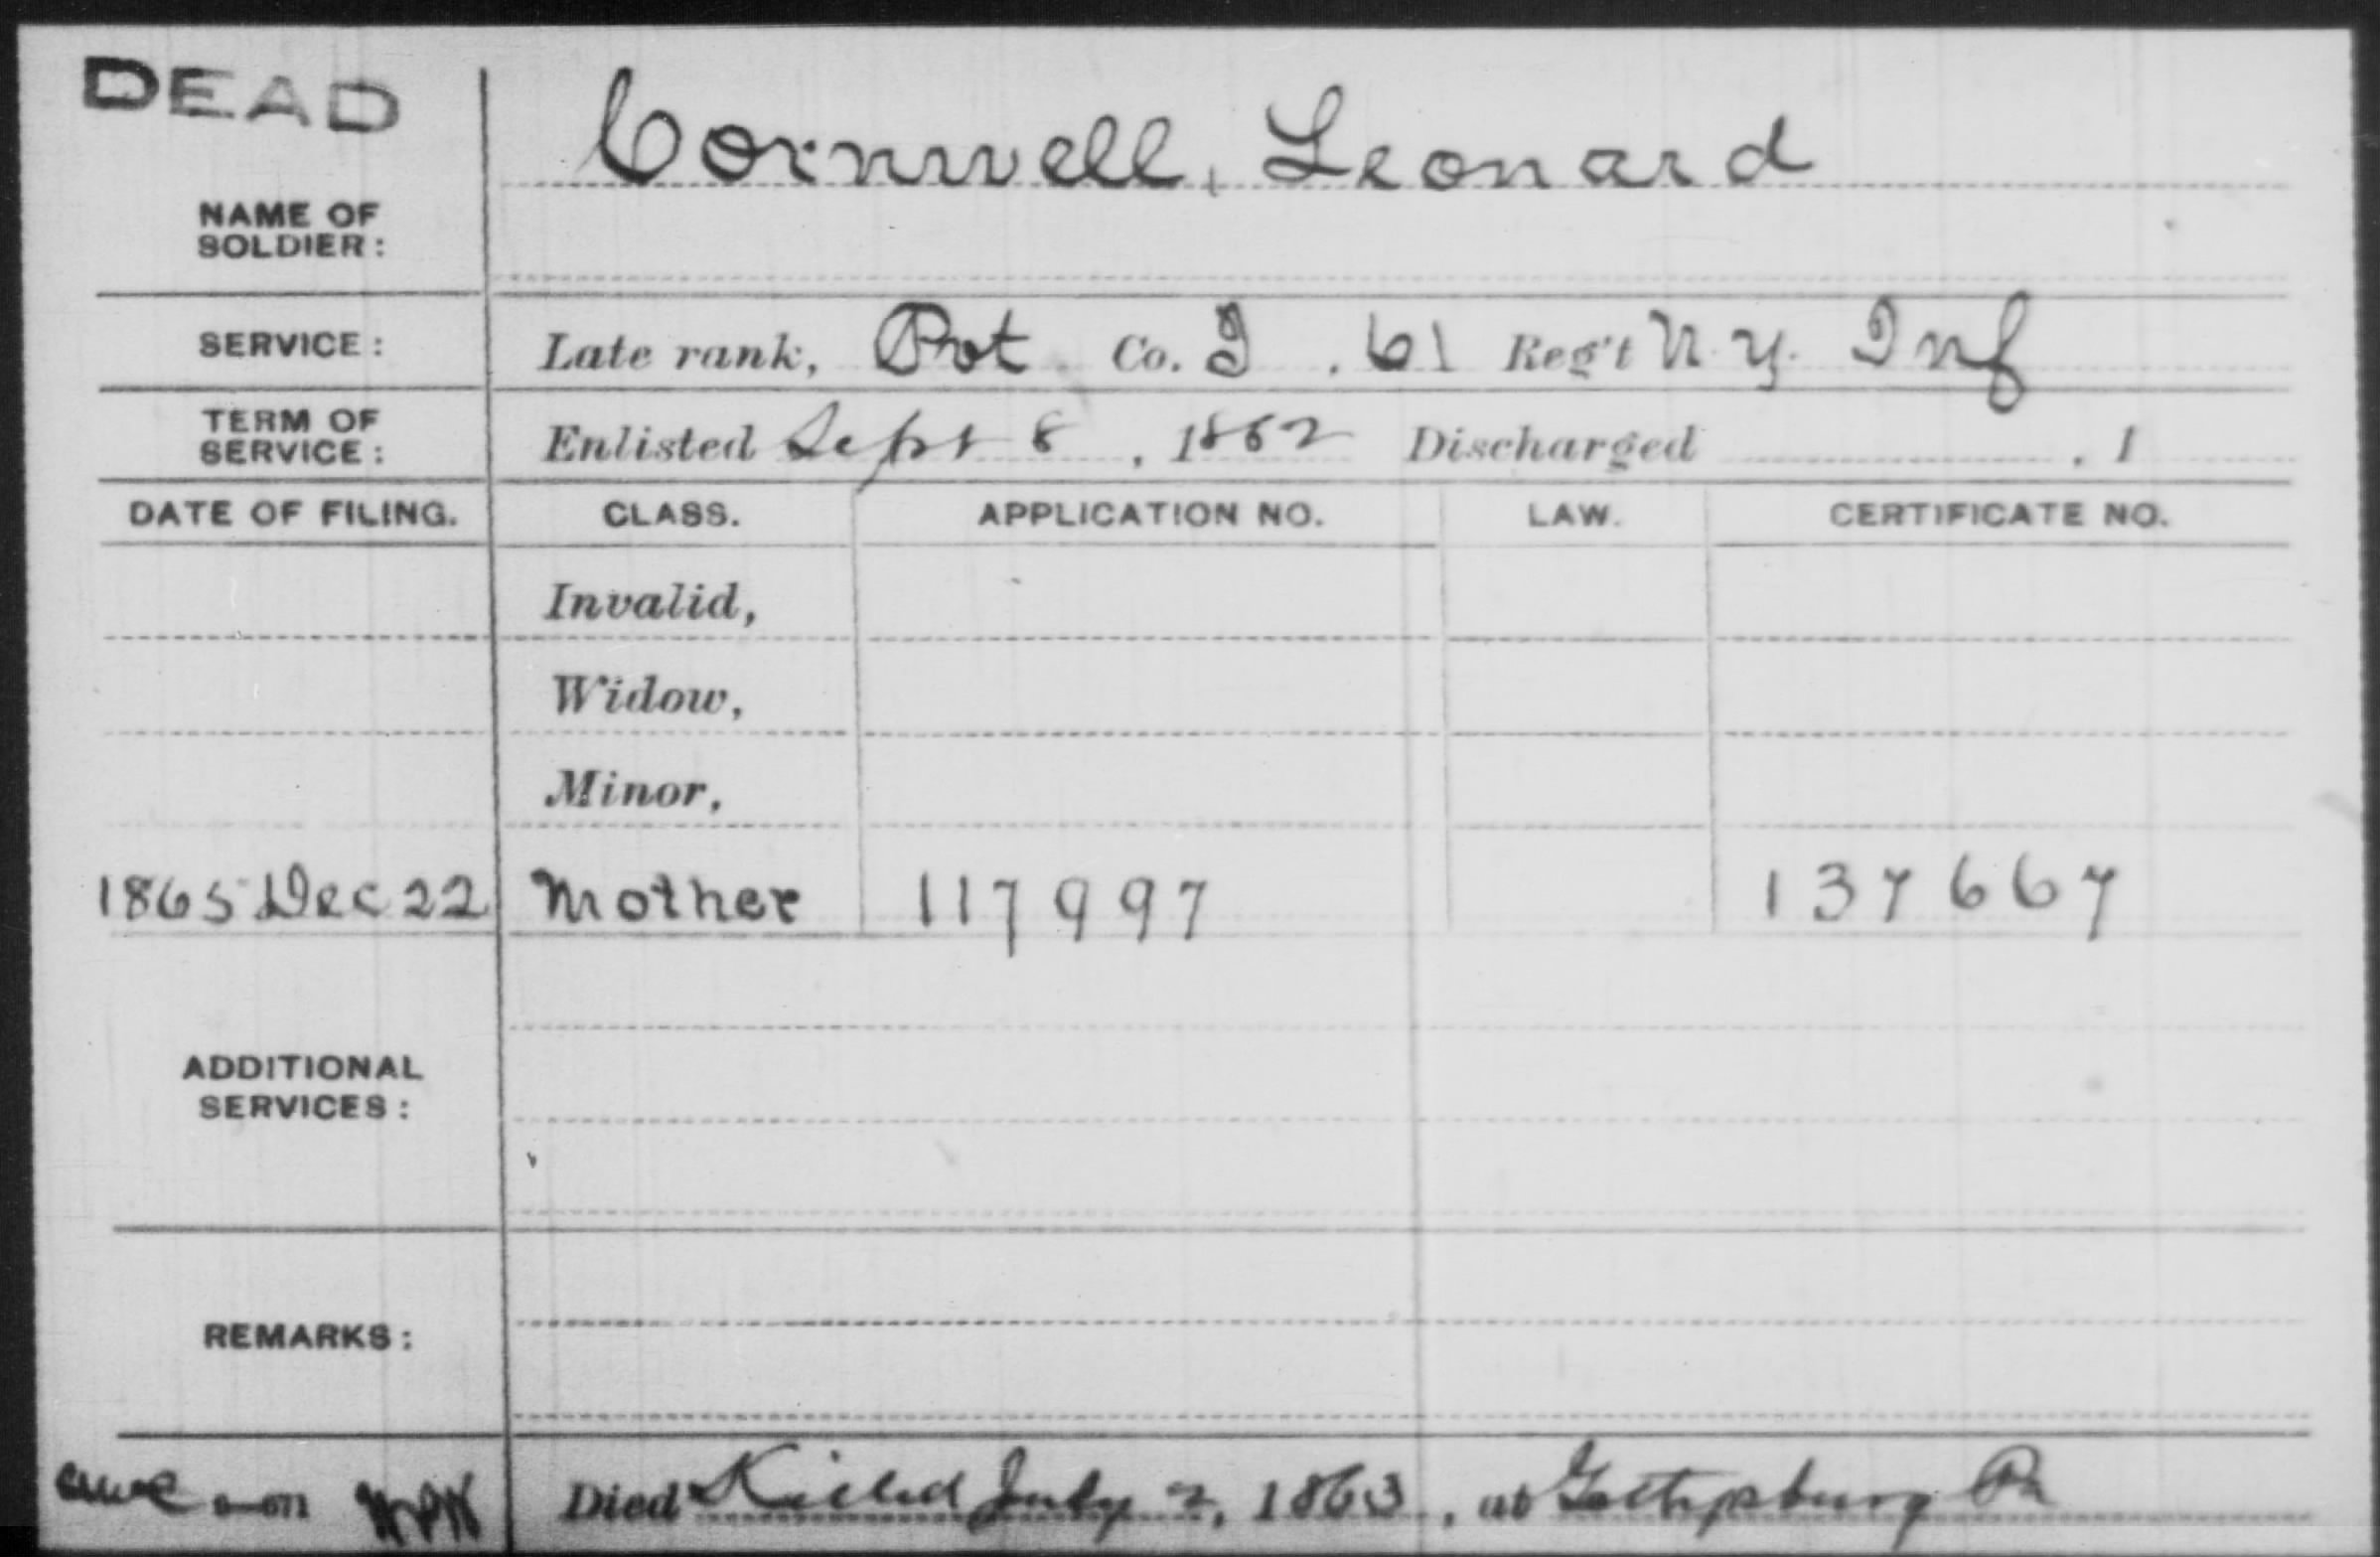 DEAD
Cornwell, Leonard
NAME OF
SOLDIER:
SERVICE: Late rank, Pvt Co. I, 61 Reg't N.Y. Inf
TERM OF
SERVICE: Enlisted Sept 8, 1862 Discharged , 1
DATE OF FILING. CLASS. APPLICATION NO. LAW. CERTIFICATE NO.
Invalid,
Widow,
Minor,
1865 Dec 22 Mother 117997 137667
ADDITIONAL
SERVICES:
REMARKS:
Died Killed July 2, 1863, at Gettysburg Pa